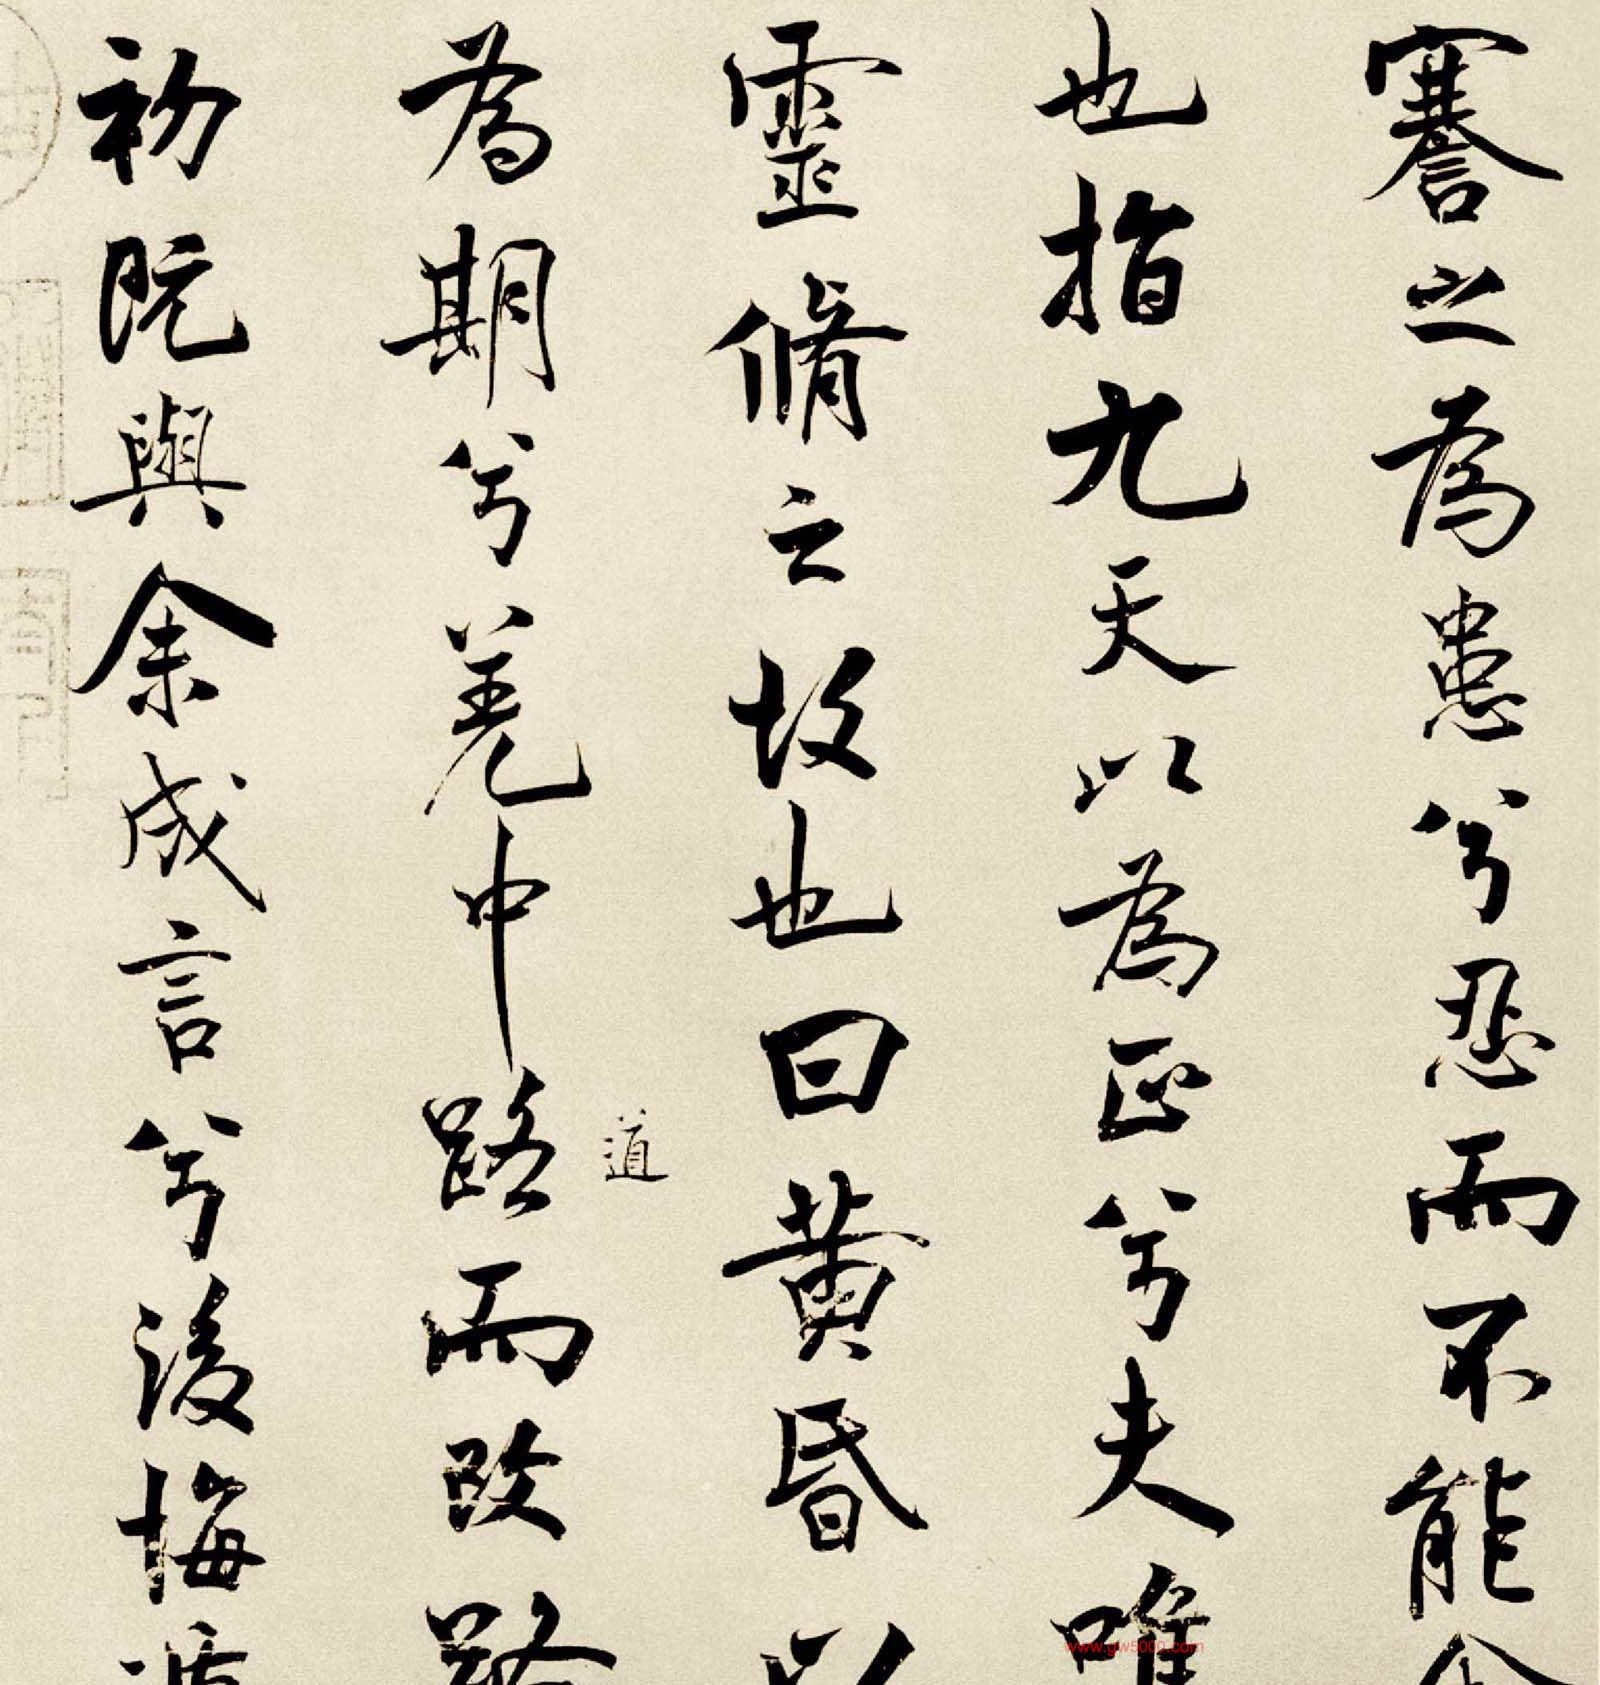 謇之為患兮忍而不能舍
也指九天以為正兮夫唯
靈脩之故也曰黄昏以
為期兮羌中路而改路
道
初既與余成言兮後悔遁
www.gw5000.com